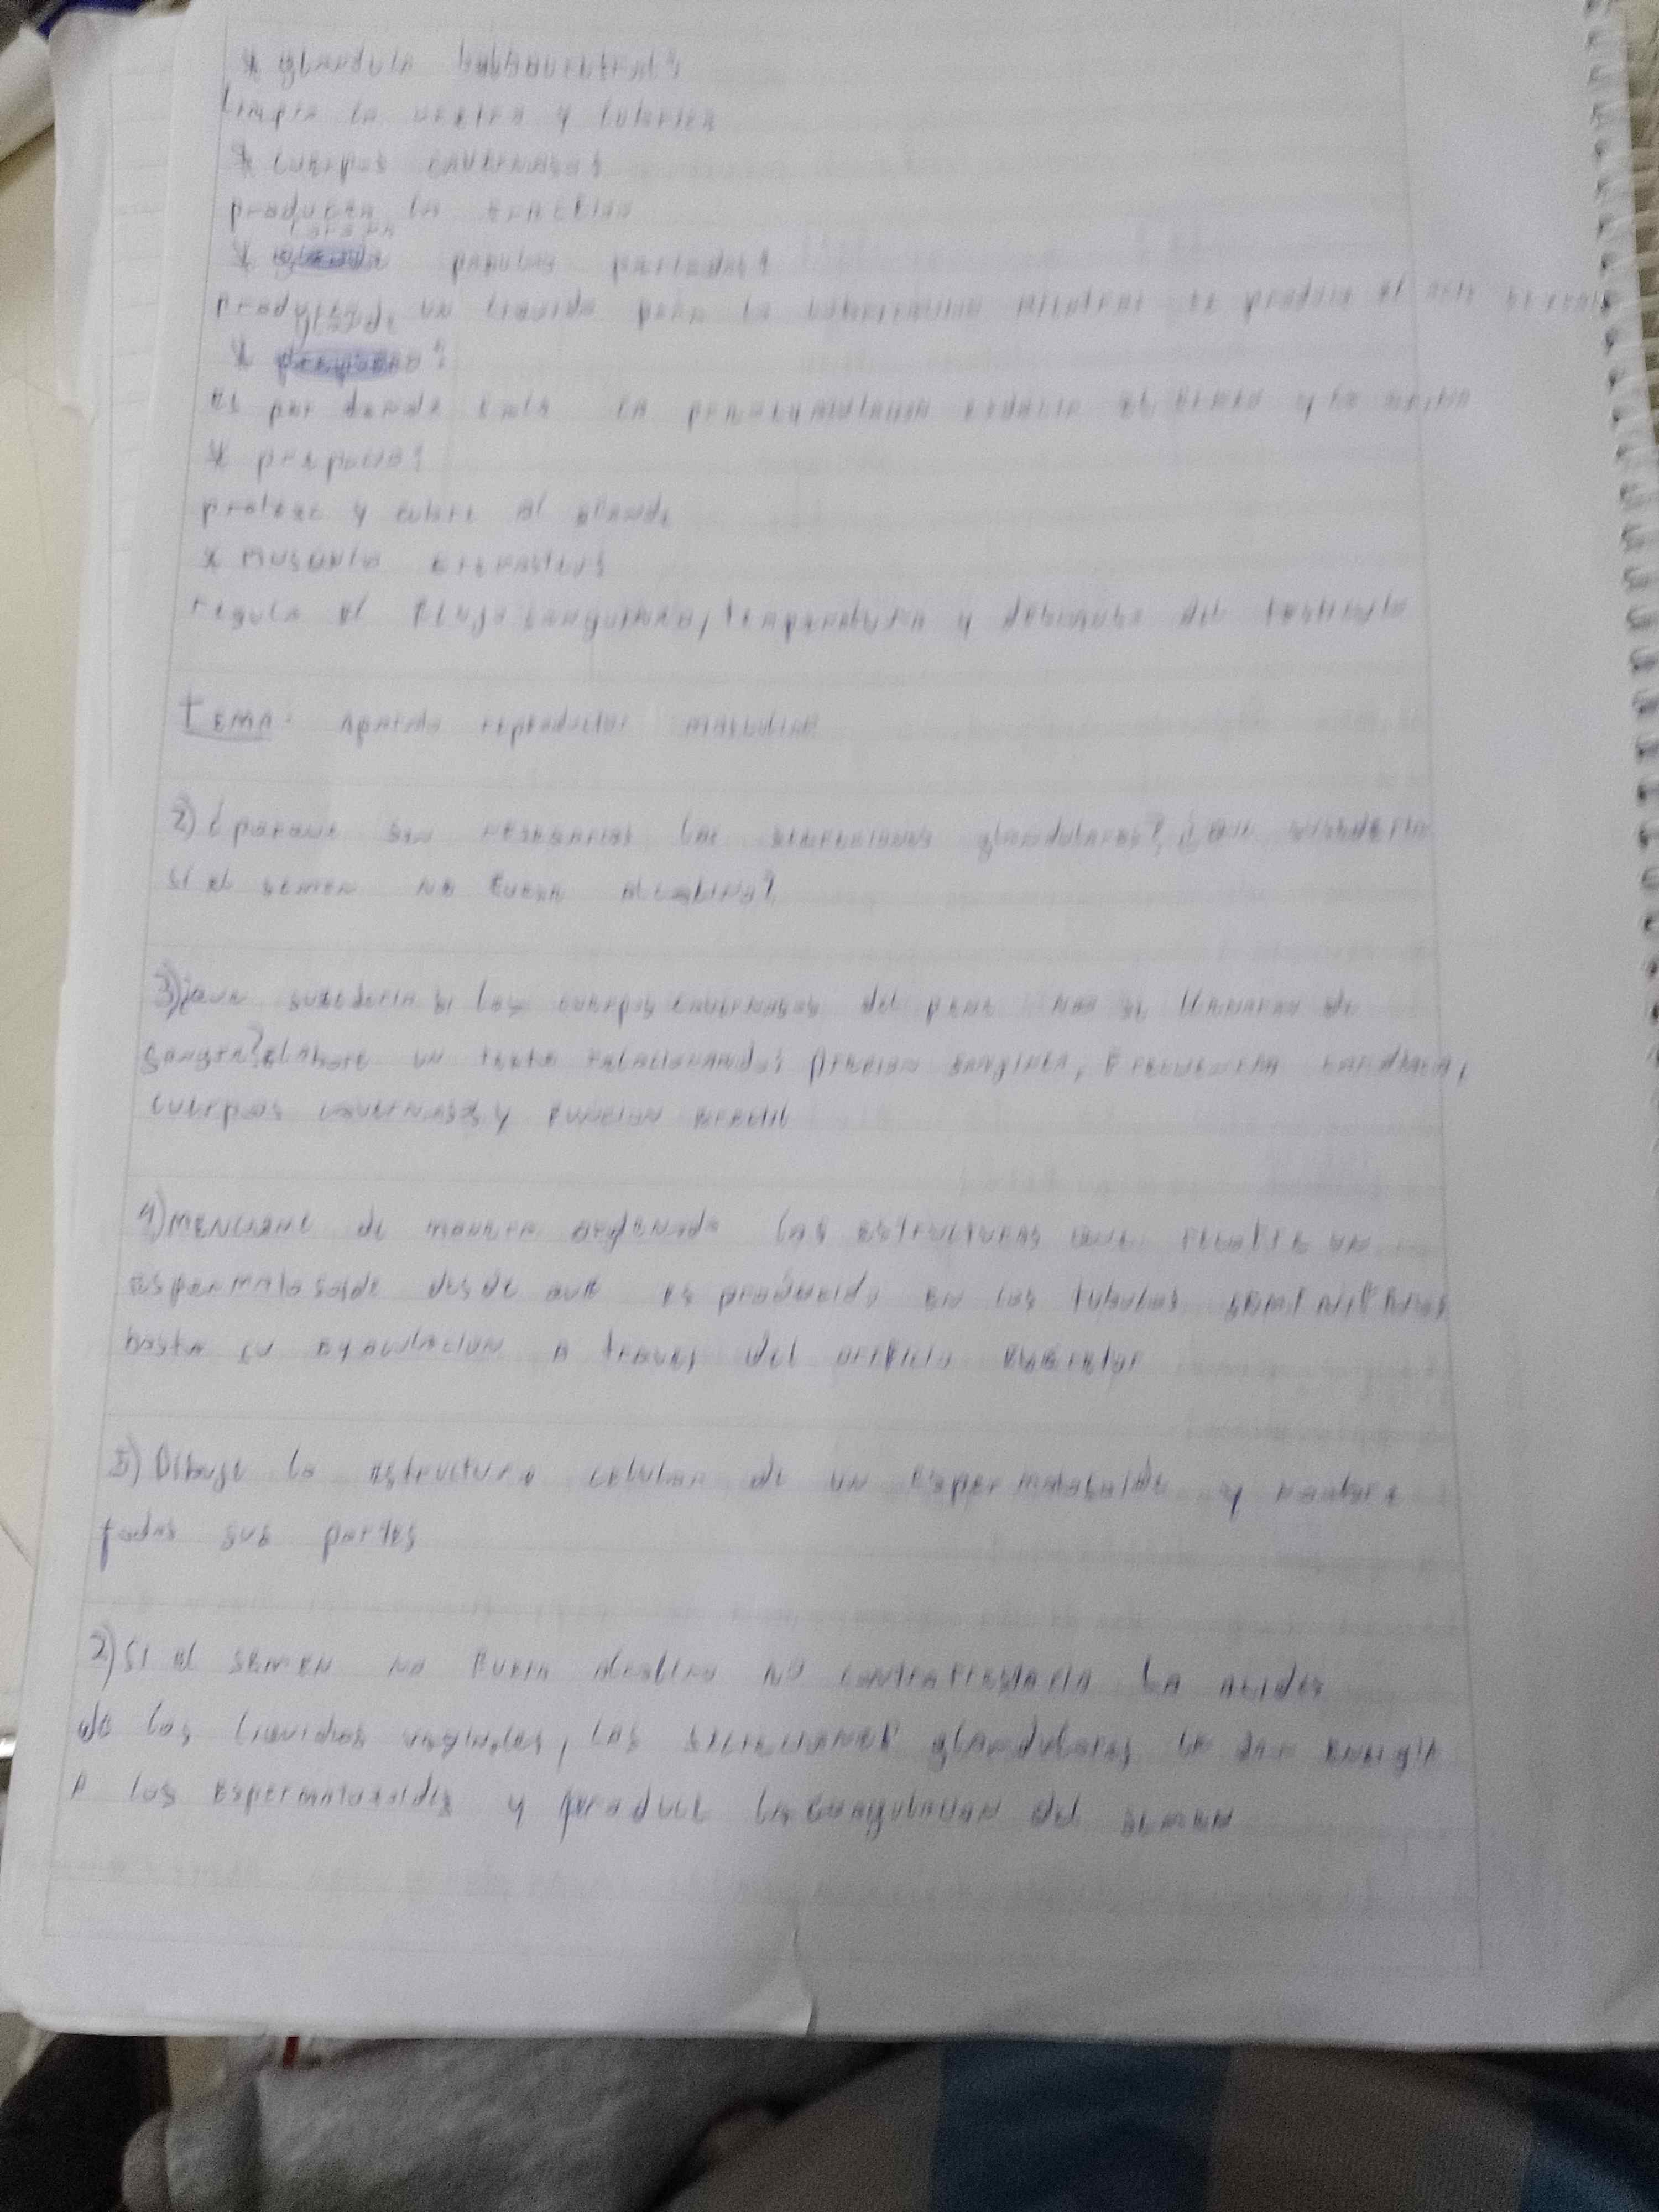 * glandula bulbouretral?
Limpia la uretra y lubrica
* cuerpos cavernosos
producen la ereccion
corona
* papulas perladas?
producen un liquido para la lubricacion mientras se produce el acto sexual
glande
* prepucio?
es por donde sale la semen y la orina
* prepucio?
proteje y cubre al glande
* musculo cremaster?
regula el flujo sanguineo, temperatura y del testiculo
Tema: Aparato reproductor masculino
2) ¿porque son nesesarias las secreciones glandulares?, ¿que sucederia
si el semen no fuera alcalino?
3) ¿que sucederia si los cuerpos cavernosos del pene no se llenaran de
sangre? elabore un texto relacionando: presion sanginea, frecuencia cardiaca,
cuerpos cavernosos y funcion erectil
4) mencione de manera ordenada las estructuras que recorre un
espermatosoide desde que es producido en los tubulos seminiferos
hasta su eyaculacion a traves del orificio
5) Dibuje la estructura celular de un espermatosoide y nombre
todas sus partes
2) si el semen no fuera alcalino no contrarrestaria la acides
de los liquidos vaginales, las secreciones glandulares le dan energia
a los espermatozoides y produce la coagulacion del semen